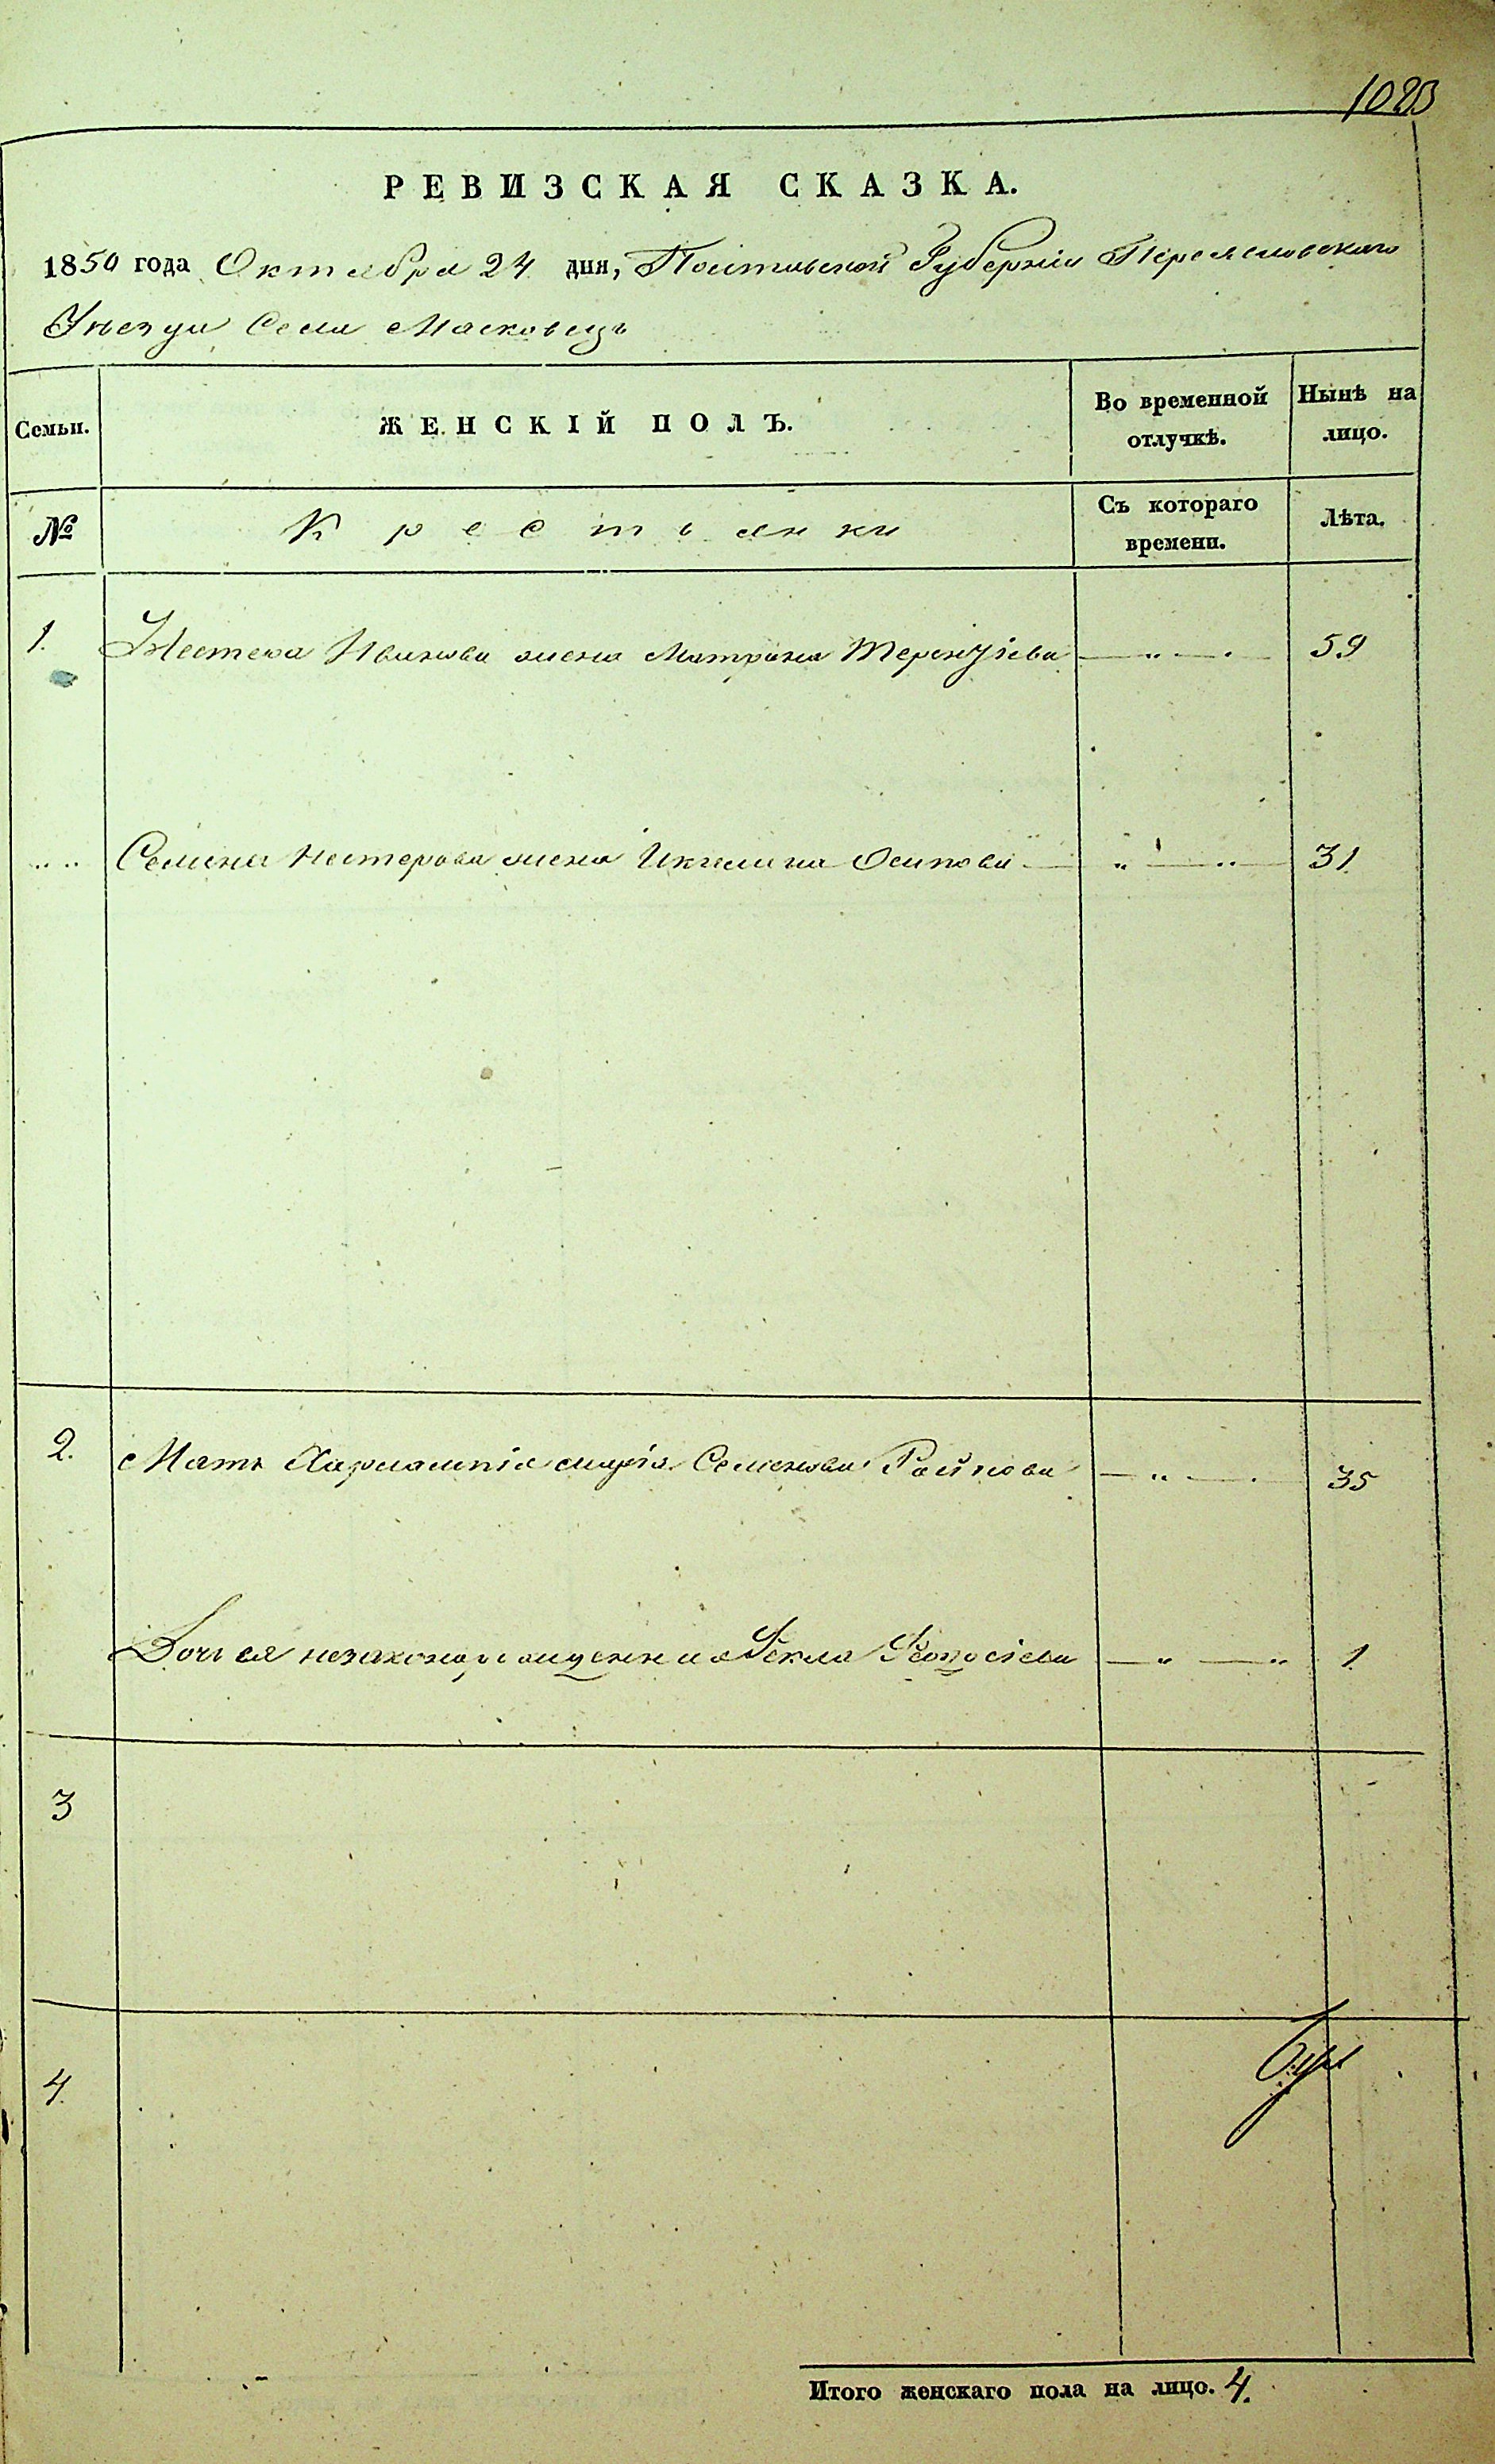 1023
РЕВИЗСКАЯ СКАЗКА.
1850 года Октября 24 дня, Полтавской Губерніи Переяславскаго
Уѣзда Села Масковецъ
Семьи.
ЖЕНСКІЙ ПОЛЪ.
Во временной отлучкѣ.
Нынѣ на лицо.
№
Крестьянки
Съ котораго времени.
Лѣта.
1. Иванова жена Матрона Терентіева — „ — 59
„ „ Семена Нестерова жена Акилина Осипова — „ — „ — 31
2. Мать Харлампія Марія Семенова — „ — 35
Дочь ея незаконорожденная Фекла Феодосіева — „ — „ 1
3
4.
Итого женскаго пола на лицо. 4.